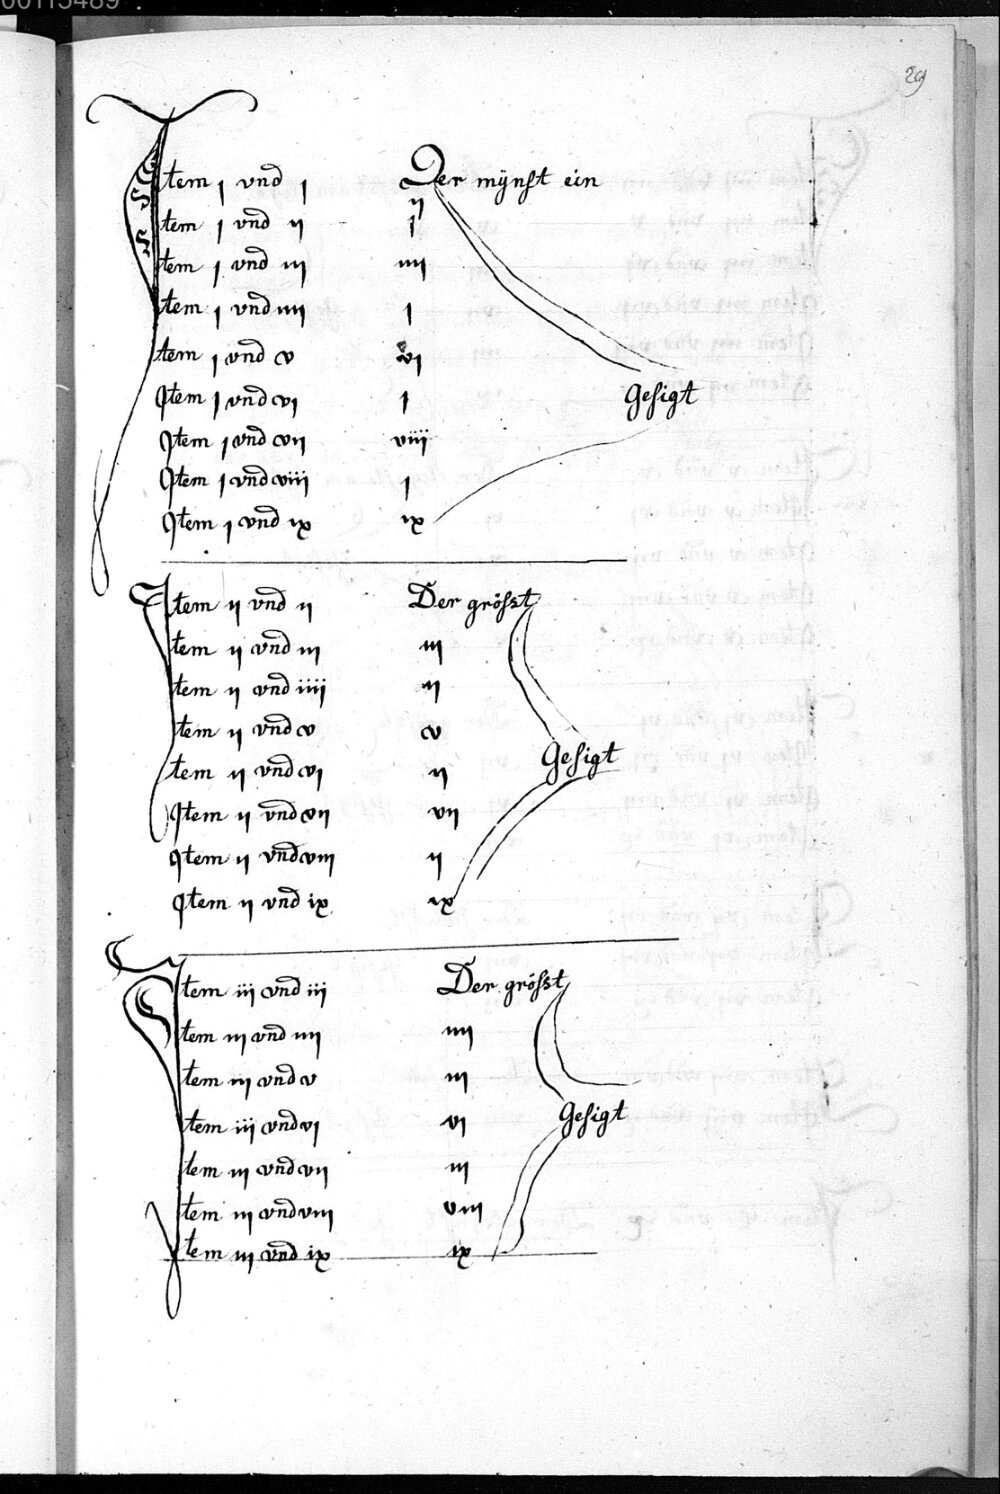 00115489
29
Jtem j vnd j Der mÿnst ein
ij
Jtem j vnd ij j
Jtem j vnd iij iiij
Jtem j vnd iiij j
Jtem j vnd v vj
Jtem j vnd vj j
Gesigt
Jtem j vnd vij viij
Jtem j vnd viij j
Jtem j vnd ix ix
Jtem ij vnd ij Der gröst
Jtem ij vnd iij iij
Jtem ij vnd iiij ij
Jtem ij vnd v v
Gesigt
Jtem ij vnd vj ij
Jtem ij vnd vij vij
Jtem ij vnd viij ij
Jtem ij vnd ix ix
Jtem iij vnd iij Der gröst
Jtem iij vnd iiij iiij
Jtem iij vnd v iij
Jtem iij vnd vj vj
Gesigt
Jtem iij vnd vij iij
Jtem iij vnd viij viij
Jtem iij vnd ix ix